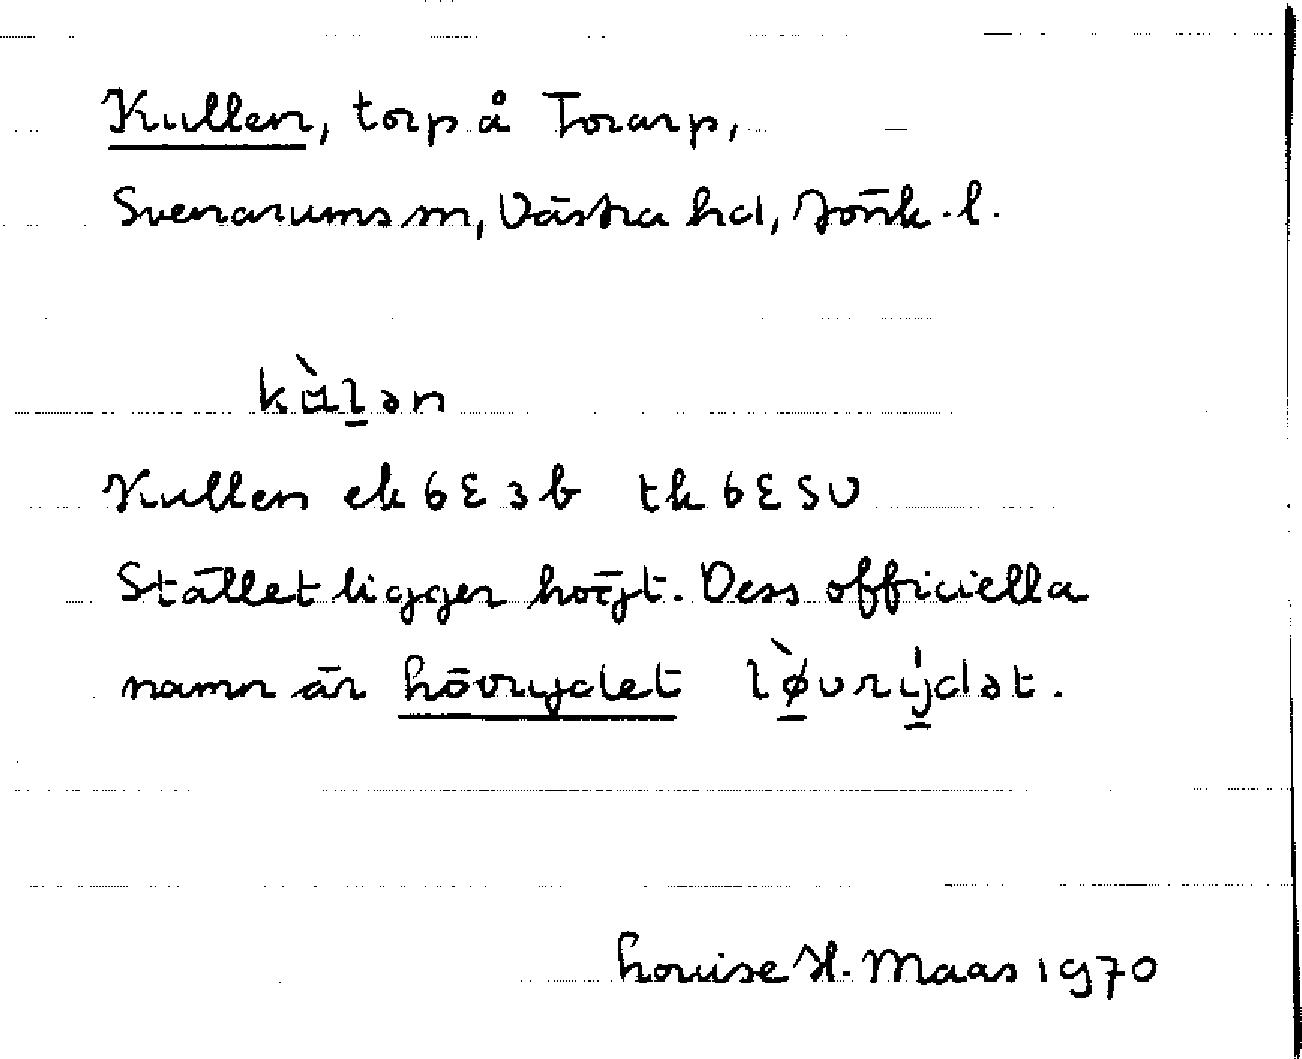 Kullen, torp å Torarp,
Svenarums sn, Västra hd, Jönk. l.
kàḻən
Kullen ek 6E3b tk 6E SV
Stället ligger högt. Dess officiella
namn är Lövrydet lø̱̀vry̱̍dət.
Louise H. Maas 1970